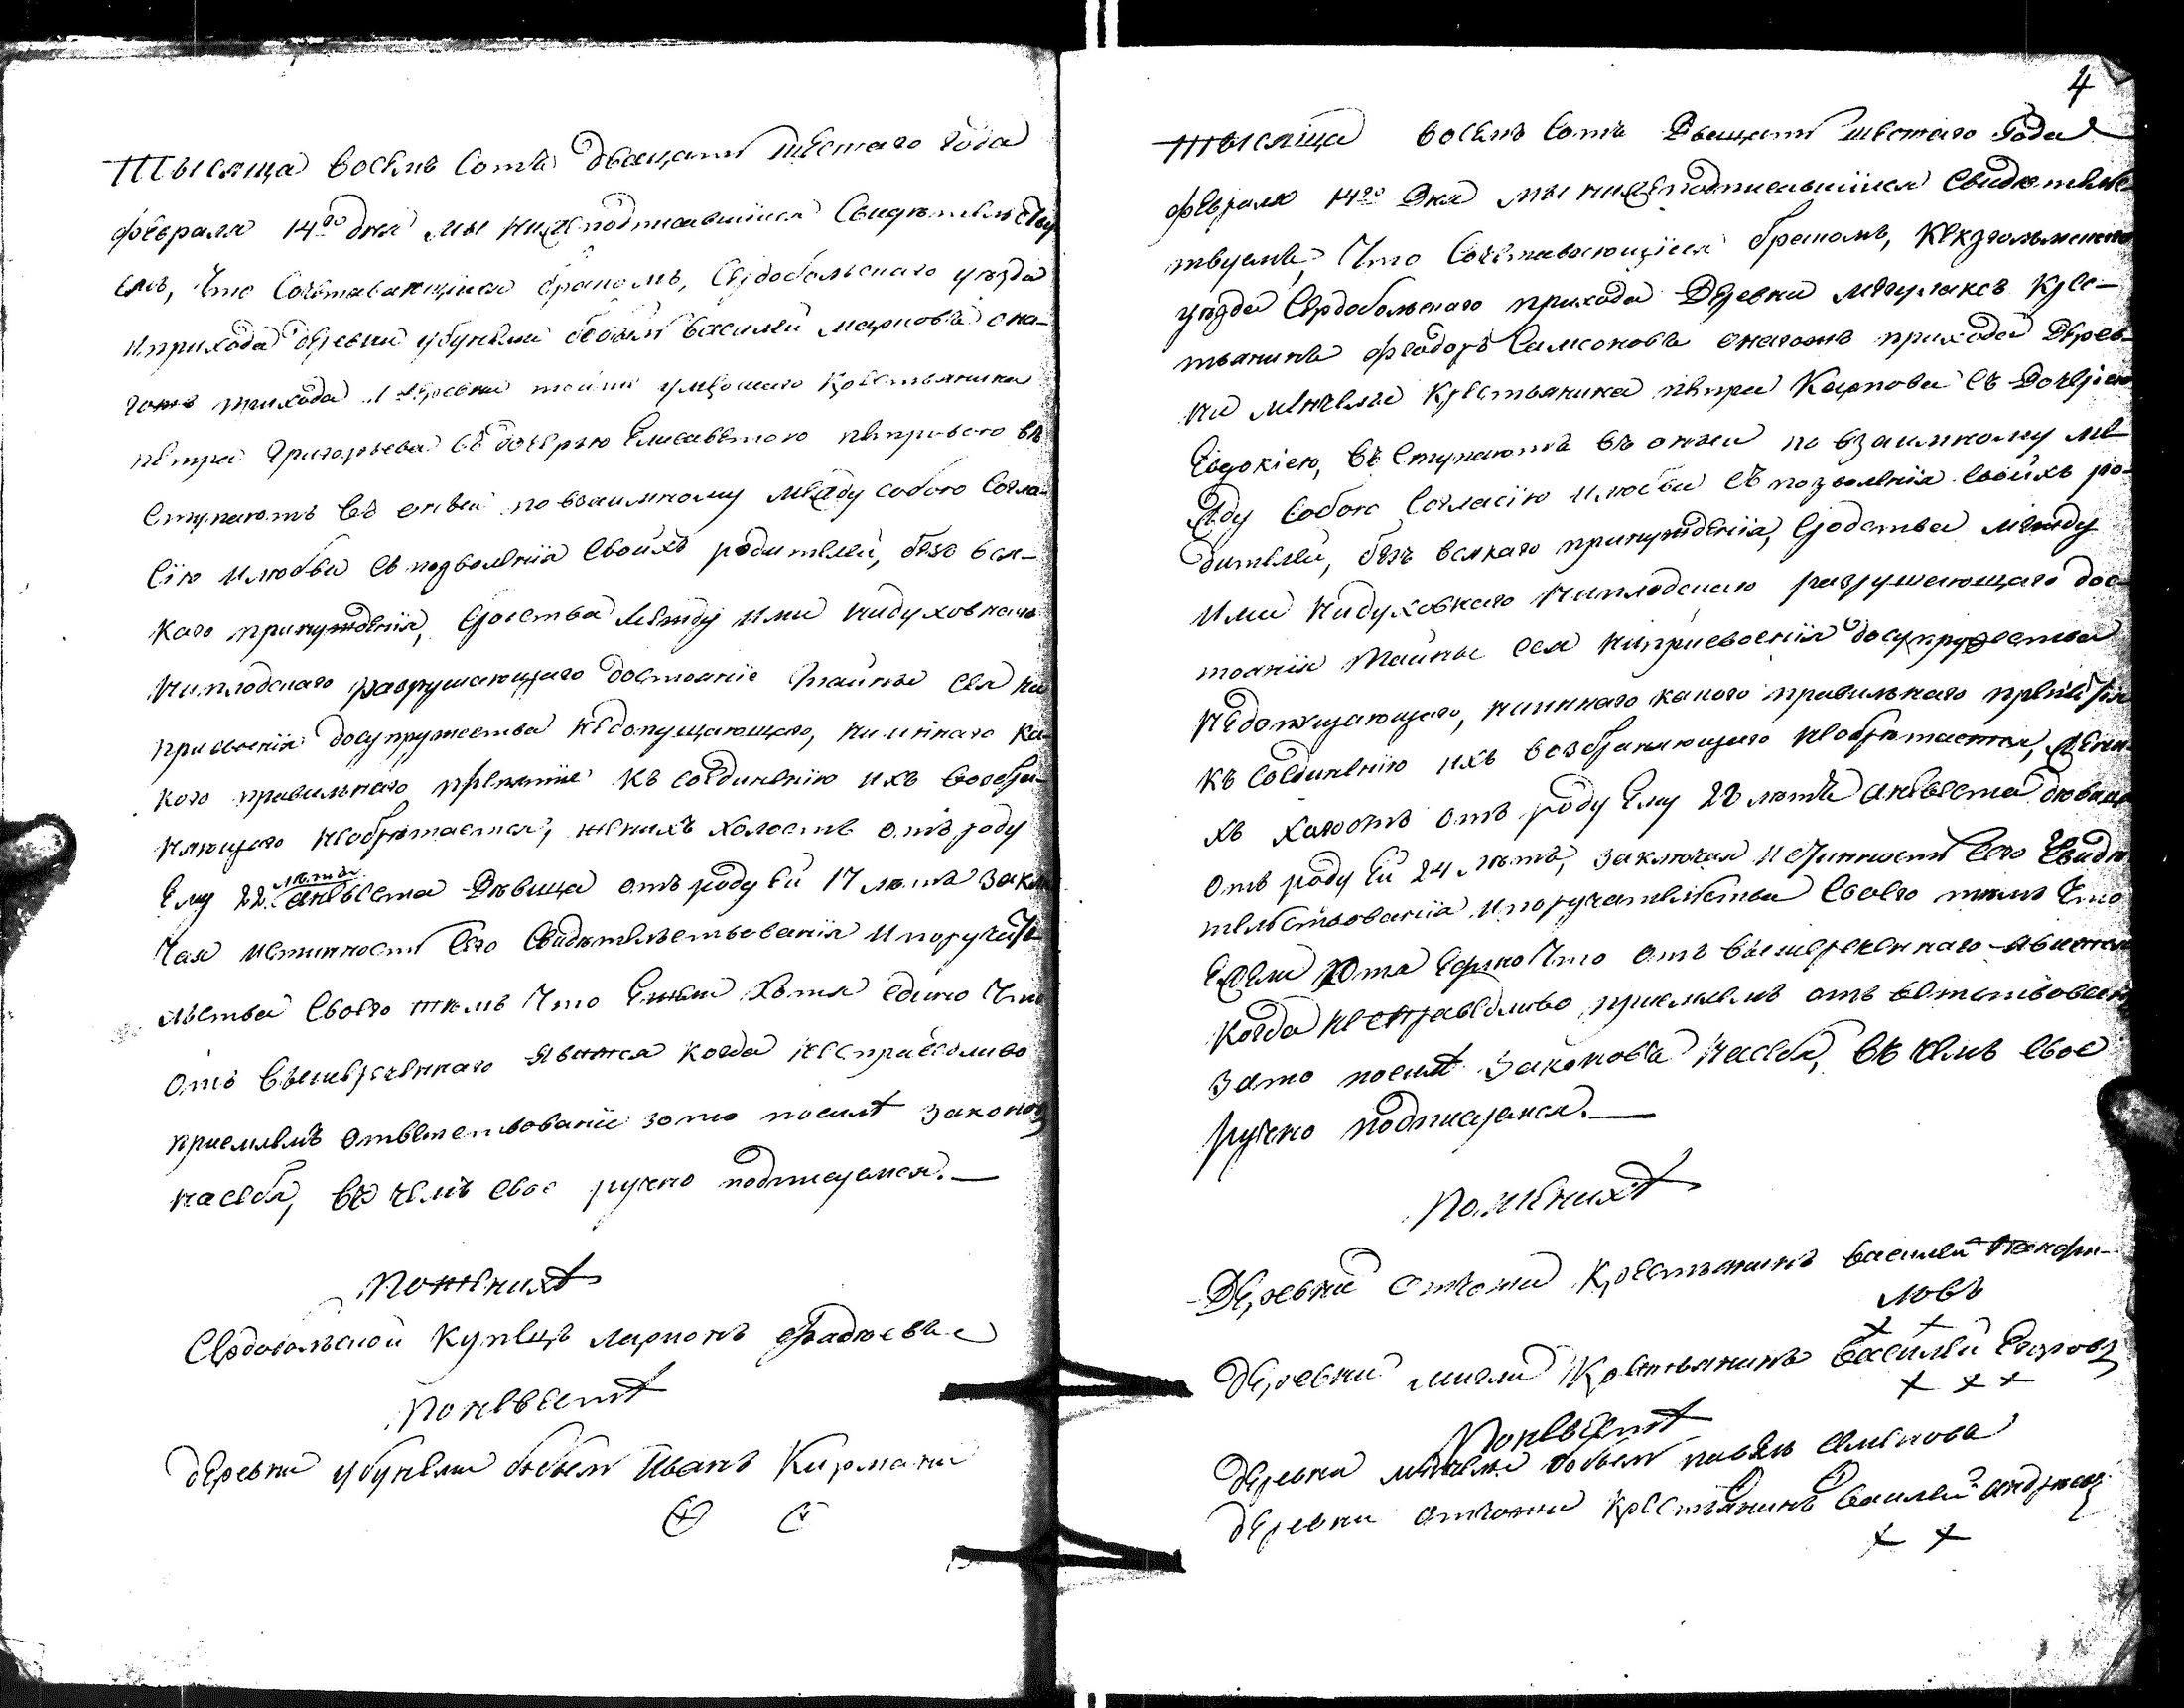 Тысяща восемъ сотъ двацать шестаго года
февраля 14го дня мы нижеподписавшіися свидѣтельству
емъ, что сочетавающіися бракомъ, Сердобольскаго уѣзда
и прихода деревни убунѣми бобыль василей марковъ она-
гожъ прихода и деревни тойже умершаго крестьянина
петра Григорьева съ дочерью Елисаветою петровою въ
ступаютъ въ оный по взаимному между собою согла-
сію и любви съ позволенія своихъ родителей, безъ вся-
каго принужденія, сродства между ими нидуховнаго
ниплодскаго разрушающаго достояніе тайны сея ни
присвоенія досупружества недопущающаго, ни иннаго ка-
кого правильнаго препятіе къ соединенію ихъ возбра-
няющаго необрѣтается, женихъ холостъ отъ роду
Ему 22 лѣтъ аневеста дѣвица отъ роду ей 17 лѣтъ заклю
чая истинность сего свидѣтельствованія и поручите-
льства своего тѣмъ что Ежели хотя едино что
отъ вышереченнаго явится когда несправедливо
приемлемъ ответствованіе зато посилѣ законовъ
насебя, въ чемъ свое ручно подписуемся.—
Поженихѣ
Сердобольской купецъ ларионъ фадѣевъ
Поневестѣ
деревни убунѣми бобыль Иванъ Кирмани
4
Тысяща восемъ сотъ Двацать шестаго Года
февраля 14го Дня мы нижеподписавшіися свидѣтельс
твуемъ, Что сочетавающіися бракомъ, Кекзгольмскаго
уѣзда Сердобольскаго прихода Деревни мегулаксъ крес-
тьянинъ феодоръ Самсоновъ онагожъ прихода Дерев-
ни крестьянина петра Карпова съ дочерью
Евдокіею, въ ступаютъ въ оный по взаимному ме-
жду собою согласію и любви съ позволенія своихъ ро-
дителей, безъ всякаго принужденія, сродства между
ими нидуховнаго ниплодскаго разрушающаго дос-
тоянія тайны сея ниприсвоенія досупружества
недопущающаго, нииннаго какого правильнаго препятія
къ соединенію ихъ возбраняющаго необрѣтается, жени-
хъ холостъ отъ роду Ему 22 лѣтъ аневеста дѣвица
отъ роду Ей 24 лѣтъ, заключая истинность сего свидѣ
тельствованія и поручательства своего тѣмъ что
Ежели хотя едино что отъ вышереченнаго явится
когда несправедливо приемлемъ отъ ветствованіе
зато посилѣ законовъ насебя, въ чемъ свое
ручно подписуемся.—
Поженихѣ
Деревни крестьянинъ василей Панфи-
ловъ
деревни мигли крестьянинъ василей Егоровъ
Поневестѣ
деревни бобыль павелъ семенова
деревни крестьянинъ василей андреевъ